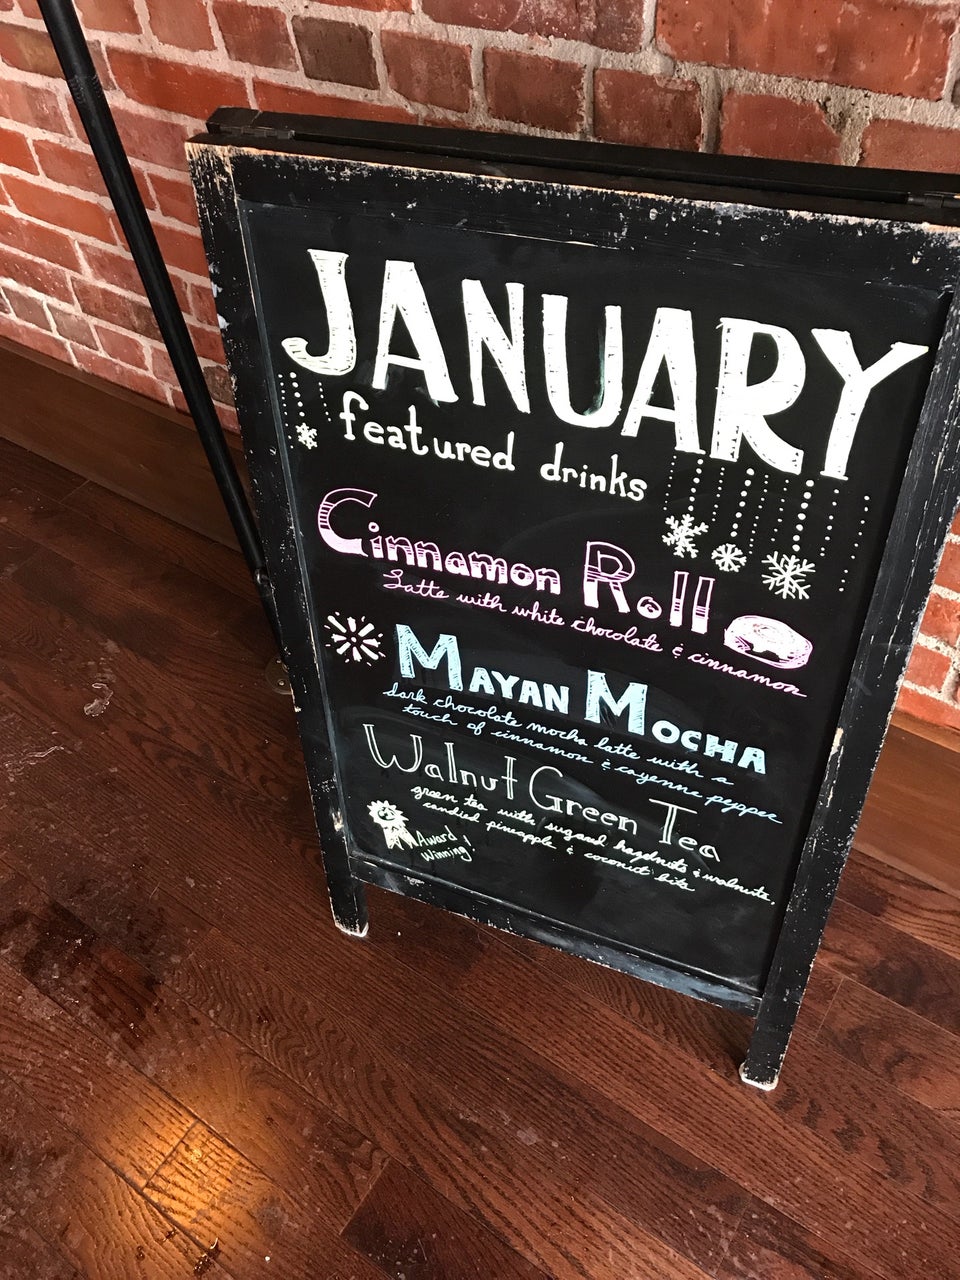 JANUARY
featured drinks
Cinnamon Roll
Latte with white chocolate & cinnamon
MAYAN MOCHA
dark chocolate mocha latte with a
touch of cinnamon & cayenne pepper
Walnut Green Tea
green tea with sugared hazelnuts & walnuts,
candied pineapple & coconut bits
Award
Winning!